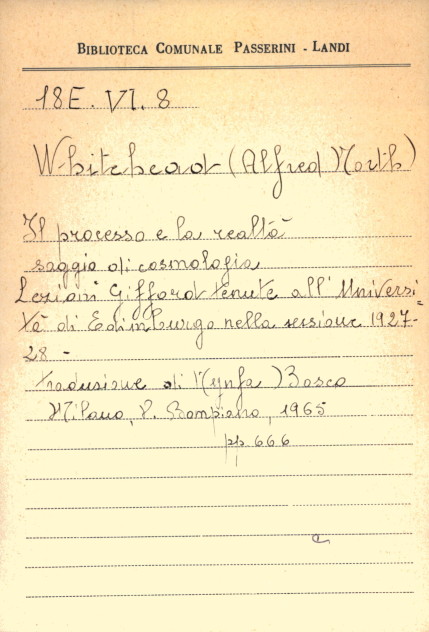 BIBLIOTECA COMUNALE PASSERINI - LANDI
18E. VI. 8
Whitehead (Alfred North)
Il processo e la realtà
saggio di cosmologia
Lezioni Gifford tenute all'Universi=
tà di Edimburgo nella sessione 1927-
28 -
traduzione di N(ynfa) Bosco
Milano, V. Bompiano, 1965
pp. 666